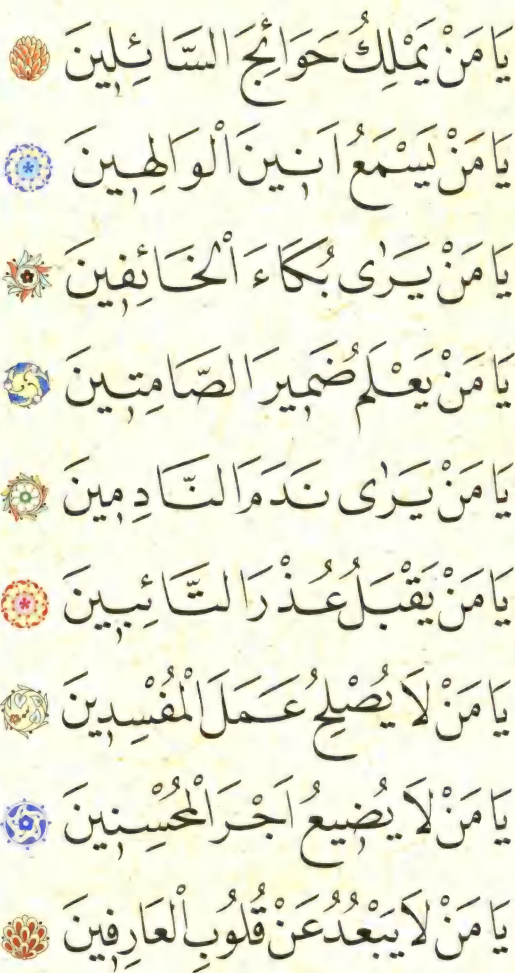 يَا مَنْ يَمْلِكُ حَوَائِجَ السَّائِلِينَ
يَا مَنْ يَسْمَعُ اَنِينَ الْوَالِهِينَ
يَا مَنْ يَرٰى بُكَاءَ الْخَائِفِينَ
يَا مَنْ يَعْلَمُ ضَمِيرَ الصَّامِتِينَ
يَا مَنْ يَرٰى نَدَمَ النَّادِمِينَ
يَا مَنْ يَقْبَلُ عُذْرَ التَّائِبِينَ
يَا مَنْ لَا يُصْلِحُ عَمَلَ الْمُفْسِدِينَ
يَا مَنْ لَا يُضِيعُ اَجْرَ الْمُحْسِنِينَ
يَا مَنْ لَا يَبْعُدُ عَنْ قُلُوبِ الْعَارِفِينَ